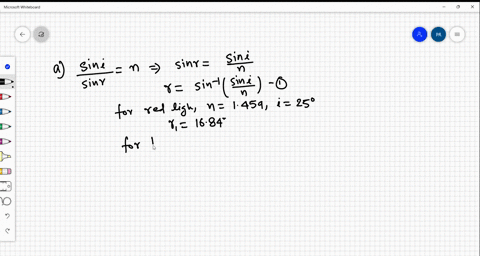 Microsoft Whiteboard
a) sin i / sin r = n ⇒ sin r = sin i / n
r = sin⁻¹ (sin i / n) - ①
for red ligh, n = 1.459, i = 25°
r₁ = 16.84°
for l
PM